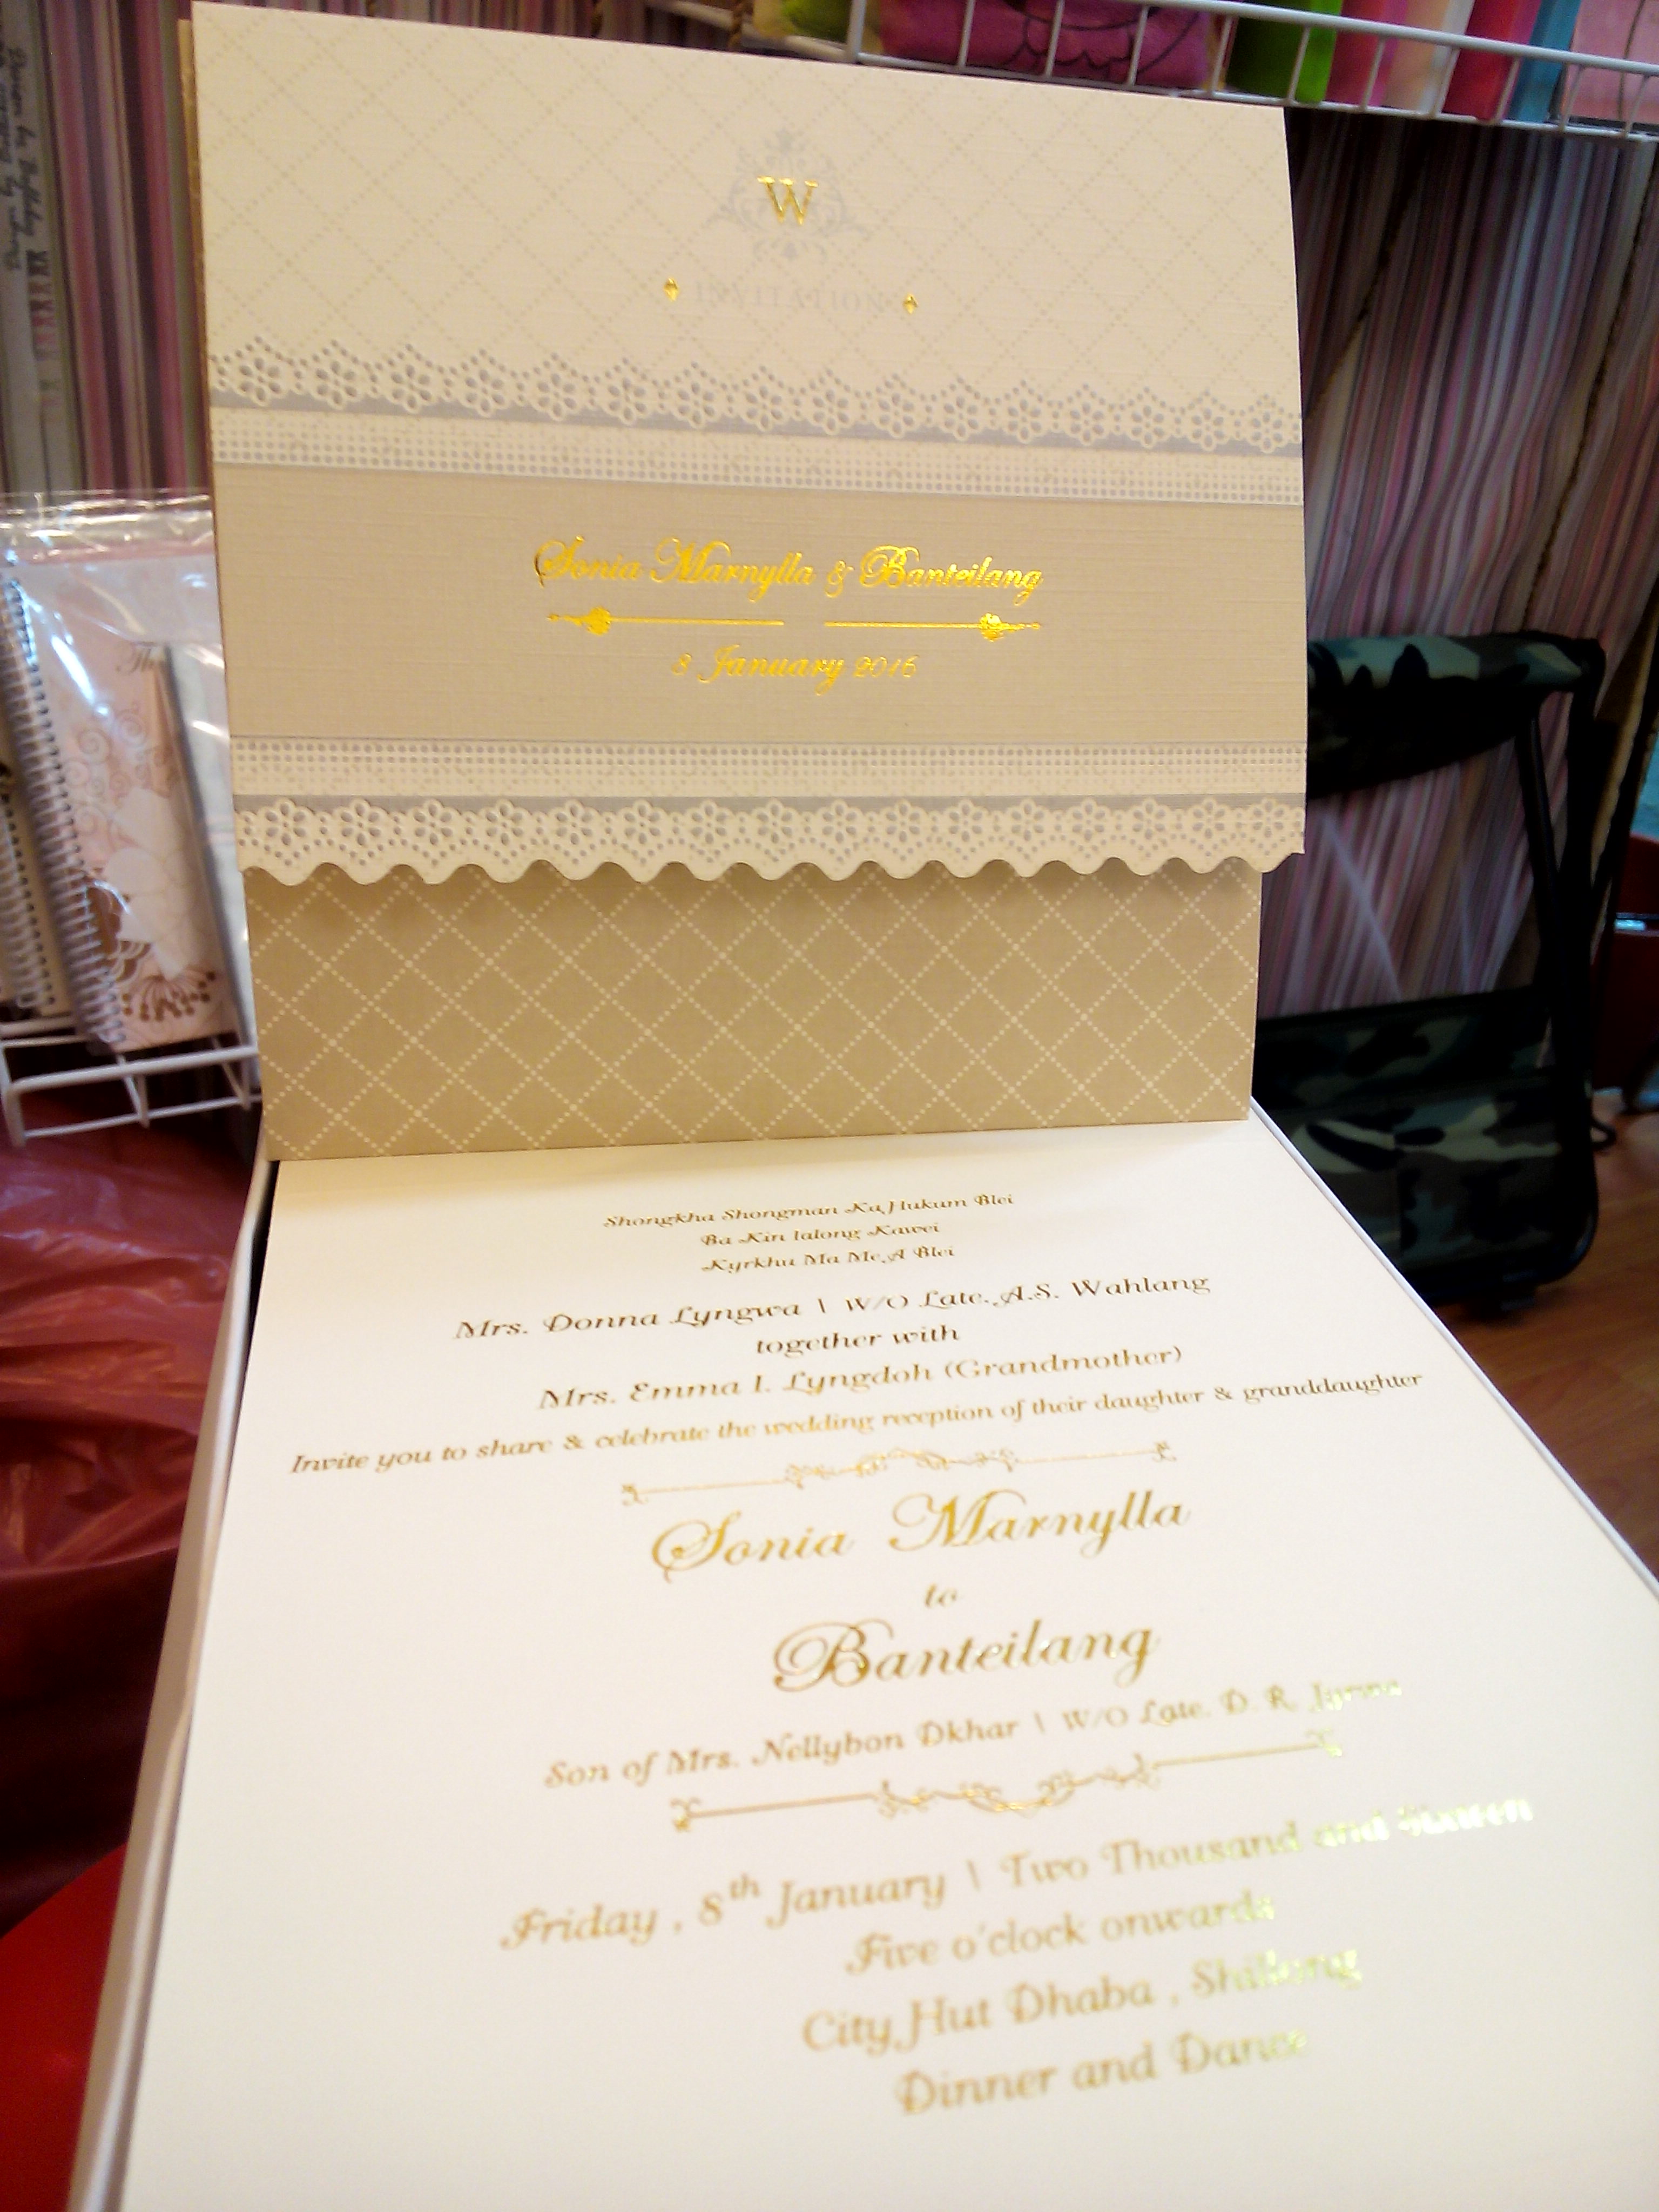 W
INVITATION
Sonia Marnylla & Banteilang
8 January 2016
Shongkha Shongman Ka Hukum Blei
Ba Kin Ialong Kawei
Kyrkhu Ma Me A Blei
Mrs. Donna Lyngwa | W/O Late. A.S. Wahlang
together with
Mrs. Emma I. Lyngdoh (Grandmother)
Invite you to share & celebrate the wedding reception of their daughter & granddaughter
Sonia Marnylla
to
Banteilang
Son of Mrs. Nellybon Dkhar | W/O Late. D. R.
Friday , 8th January | Two Thousand and Sixteen
Five o'clock onwards
City Hut Dhaba , Shillong
Dinner and Dance